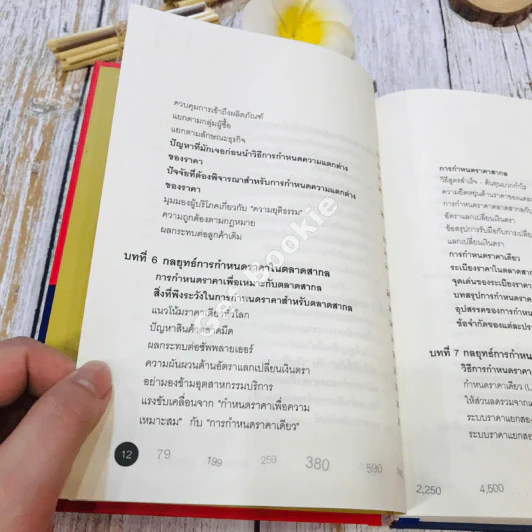 ควบคุมการเข้าถึงผลิตภัณฑ์
แยกตามกลุ่มผู้ซื้อ
แยกตามลักษณะธุรกิจ
ปัญหาที่มักเจอก่อนนำวิธีการกำหนดความแตกต่าง
ของราคา
ปัจจัยที่ต้องพิจารณาสำหรับการกำหนดความแตกต่าง
ของราคา
มุมมองผู้บริโภคเกี่ยวกับ "ความยุติธรรม"
ความถูกต้องตามกฎหมาย
ผลกระทบต่อลูกค้าเดิม
บทที่ 6 กลยุทธ์การกำหนดราคาในตลาดสากล
การกำหนดราคาเพื่อเหมาะกับตลาดสากล
สิ่งที่พึงระวังในการกำหนดราคาสำหรับตลาดสากล
แนวโน้มราคาเดียวทั่วโลก
ปัญหาสินค้าตลาดมืด
ผลกระทบต่อซัพพลายเออร์
ความผันผวนด้านอัตราแลกเปลี่ยนเงินตรา
อย่ามองข้ามอุตสาหกรรมบริการ
แรงขับเคลื่อนจาก "กำหนดราคาเพื่อความ
เหมาะสม" กับ "การกำหนดราคาเดียว"
12 79 199 259 380 590
Get Bookie
การกำหนดราคาสากล
วิธีสูตรสำเร็จ - ต้นทุนบวกกำไร
ความยืดหยุ่นด้านราคาของแต่ละ
การกำหนดราคาตลาดสากลกับ
อัตราแลกเปลี่ยนเงินตรา
ข้อสรุปการรับมือกับการเปลี่ยน
แลกเปลี่ยนเงินตรา
การกำหนดราคาเดียว
ระเบียงราคาในตลาดสาก
จุดเด่นของระเบียงราคา
บทสรุปการกำหนดราคา
อุปสรรคของการกำหน
ข้อจำกัดของแต่ละประ
บทที่ 7 กลยุทธ์การกำหนดรา
วิธีการกำหนดราคา
กำหนดราคาเดียว (Li
ให้ส่วนลดรวมจาก
ระบบราคาแยกสอง
ระบบราคาแยกสอ
2,250 4,500